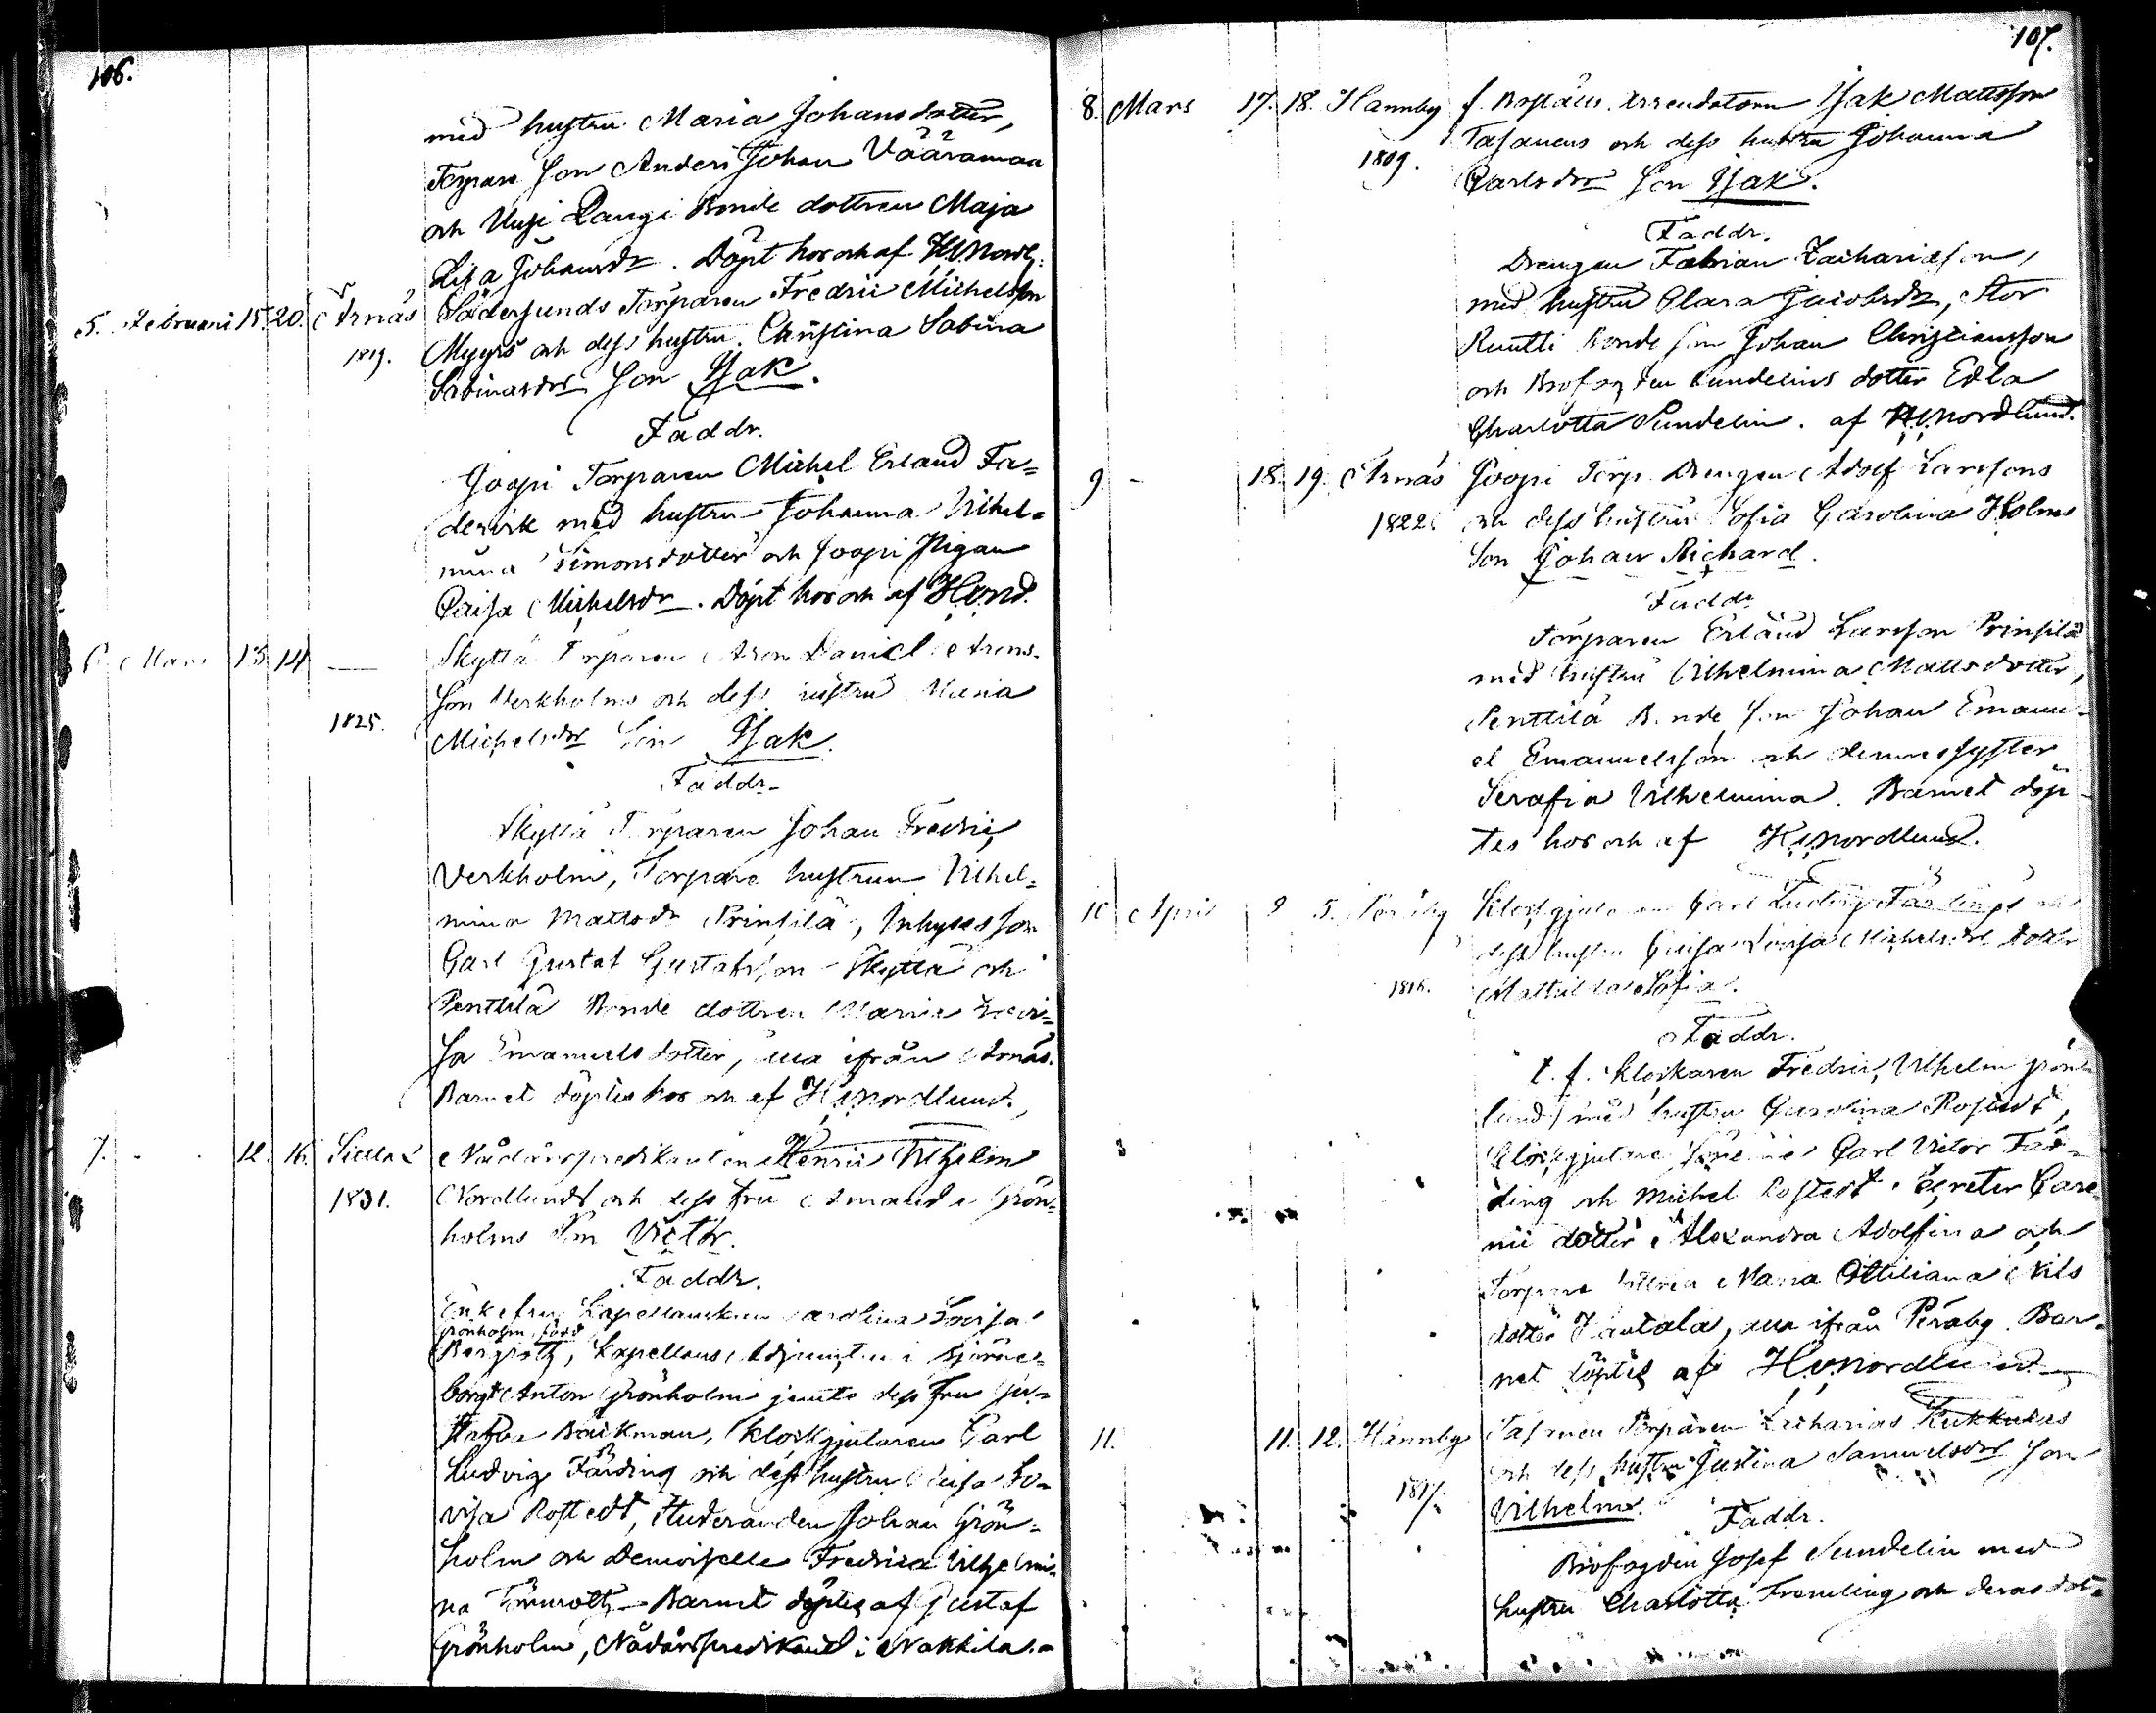 106.
med hustru Maria Johansdotter,
Torpare son Anders Johan Vääramaa
och Uusi Rangi Bonde dottren Maja
Lisa Johansdr. Döpt hos och af HVNordl:
5. Februari 15. 20. Arnäs Södersunds Torparen Fredric Michelsson
1819. Myyrs och dess hustru Christina Sabina
Sabinasdrs son Isak.
Faddr.
Joopi Torparen Michel Erland Fa=
derick med hustru Johanna Vilhel=
mina Simonsdotter och Joopi Pigan
Caisa Michelsdr. Döpt hos och af HVNd.
6. Mars 13. 14. — Skyttä Torparen Aron Daniel Arons-
son Verkholms och dess hustru Maria
1825. Michelsdrs Son Isak.
Faddr.
Skyttä Torparen Johan Fredric
Verkholm, Torpare hustrun Vilhel=
mina Mattsdr Prinsilä, Inhyses son
Carl Gustaf Gustafsson Skyttä och
Penttilä Bonde dottren Maria
sa Emanuelsdotter, alla ifrån Arnäs.
Barnet döptes hos och af HVNordlund.
7. 12. 16. Nådårspredikanten Henric Vilhelm
1831. Nordlunds och dess fru Amanda Grön=
holms Son Victor.
Faddr.
Enkefru Kapellanskan Carolina Lovisa
Grönholm född
Bergroth, Kapellans Adjuncten i Björne=
borg Anton Grönholm jemte dess fru Gu=
stafva Bäckman, Klockgjutaren Carl
Ludvig Färding och dess hustru Caisa Lo=
visa Rostedt, Studeranden Johan Grön=
holm och Demoiselle Fredrica Vilhelmi=
na Törnroth. Barnet döptes af Gustaf
Grönholm, Nådårspredikand i Nakkila.
107.
8. Mars 17. 18. Hannby f. Boställs Arrendatorn Isak Mattsson
Tasanens och dess hustru Johanna
1809. Carlsdrs son Isak.
Faddr.
Drengen Fabian Zachariasson,
med hustru Clara Jacobsdr, Stor
Ruutti Bonde son Johan Christiansson
och Brofogden Sundelins dotter Edla
Charlotta Sundelin. af HVNordlund.
9. - 18. 19. Arnäs Joopi Torp. Drengen Adolf Larssons
1822. och dess hustru Sofia Carolina Holms
Son Johan Richard.
Faddr
Torparen Erland Larsson Prinsilä
med hustru Vilhelmina Mattsdotter,
Penttilä Bonde son Johan Emanu-
el Emanuelsson och dennes syster
Serafia Vilhelmina. Barnet döp-
tes hos och af HVNordlund.
10. April 2 5. Peräby Klockgjutaren Carl Ludvig Färdings och
dess hustru Caisa Lovisa Michelsdrs dotter
1816. Mathilda Sofia.
Faddr.
t. f. Klockaren Fredric Vilhelm Grön=
lund med hustru Carolina Rostedt,
Klockgjutare Carl Victor Fär=
ding och Michel Rostedt,
dotter Alexandra Adolfina och
Torpare dottren Maria Ottiliana Nils
dotter Jautala, alla ifrån Peräby. Bar=
net döptes af HVNordlund.
11. 11. 12. Hannby Tasanen Torparen Zacharias Kukkulas
och dess hustru Justina Samuelsdrs Son
1817. Vilhelm.
Faddr.
Brofogden Josef Sundelin med
hustru Charlotta Fremling och deras dot=